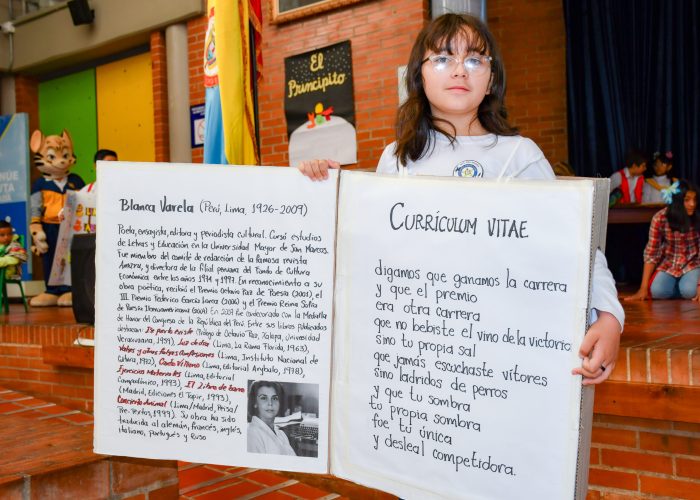 El
Principito
Blanca Varela (Perú, Lima, 1926-2009)
Poeta, ensayista, editora y periodista cultural. Cursó estudios
de Letras y Educación en la Universidad Mayor de San Marcos.
Fue miembro del comité de redacción de la famosa revista
Amaru, y directora de la filial peruana del Fondo de Cultura
Económica entre los años 1974 y 1997. En reconocimiento a su
obra poética, recibió el Premio Octavio Paz de Poesía (2001), el
III Premio Federico García Lorca (2006) y el Premio Reina Sofía
de Poesía Iberoamericana (2006). En 2007 fue condecorada con la Medalla
de Honor del Congreso de la República del Perú. Entre sus libros publicados
destacan: Ese puerto existe (Prólogo de Octavio Paz, Xalapa, Universidad
Veracruzana, 1959), Luz de día (Lima, La Rama Florida, 1963),
Valses y otras falsas confesiones (Lima, Instituto Nacional de
Cultura, 1972), Canto Villano (Lima, Editorial Arybalo, 1978),
Ejercicios Materiales (Lima, Editorial
Campodónico, 1993), El libro de barro
(Madrid, Ediciones El Tapir, 1993),
Concierto Animal (Lima/Madrid, Peisa/
Pre-Textos, 1999). Su obra ha sido
traducida al alemán, francés, inglés,
italiano, portugués y Ruso
CURRÍCULUM VITAE
digamos que ganamos la carrera
y que el premio
era otra carrera
que no bebiste el vino de la victoria
sino tu propia sal
que jamás escuchaste vítores
sino ladridos de perros
y que tu sombra
tu propia sombra
fue tu única
y desleal competidora.